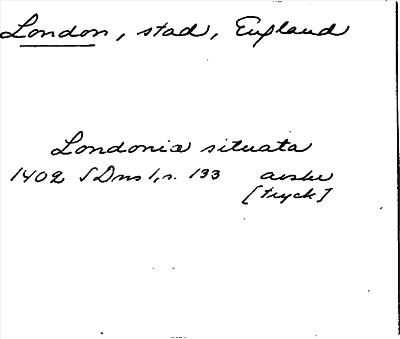 London, stad, England
Londoniæ situata
1402 SDns 1, s. 133 avskr
[tryck]